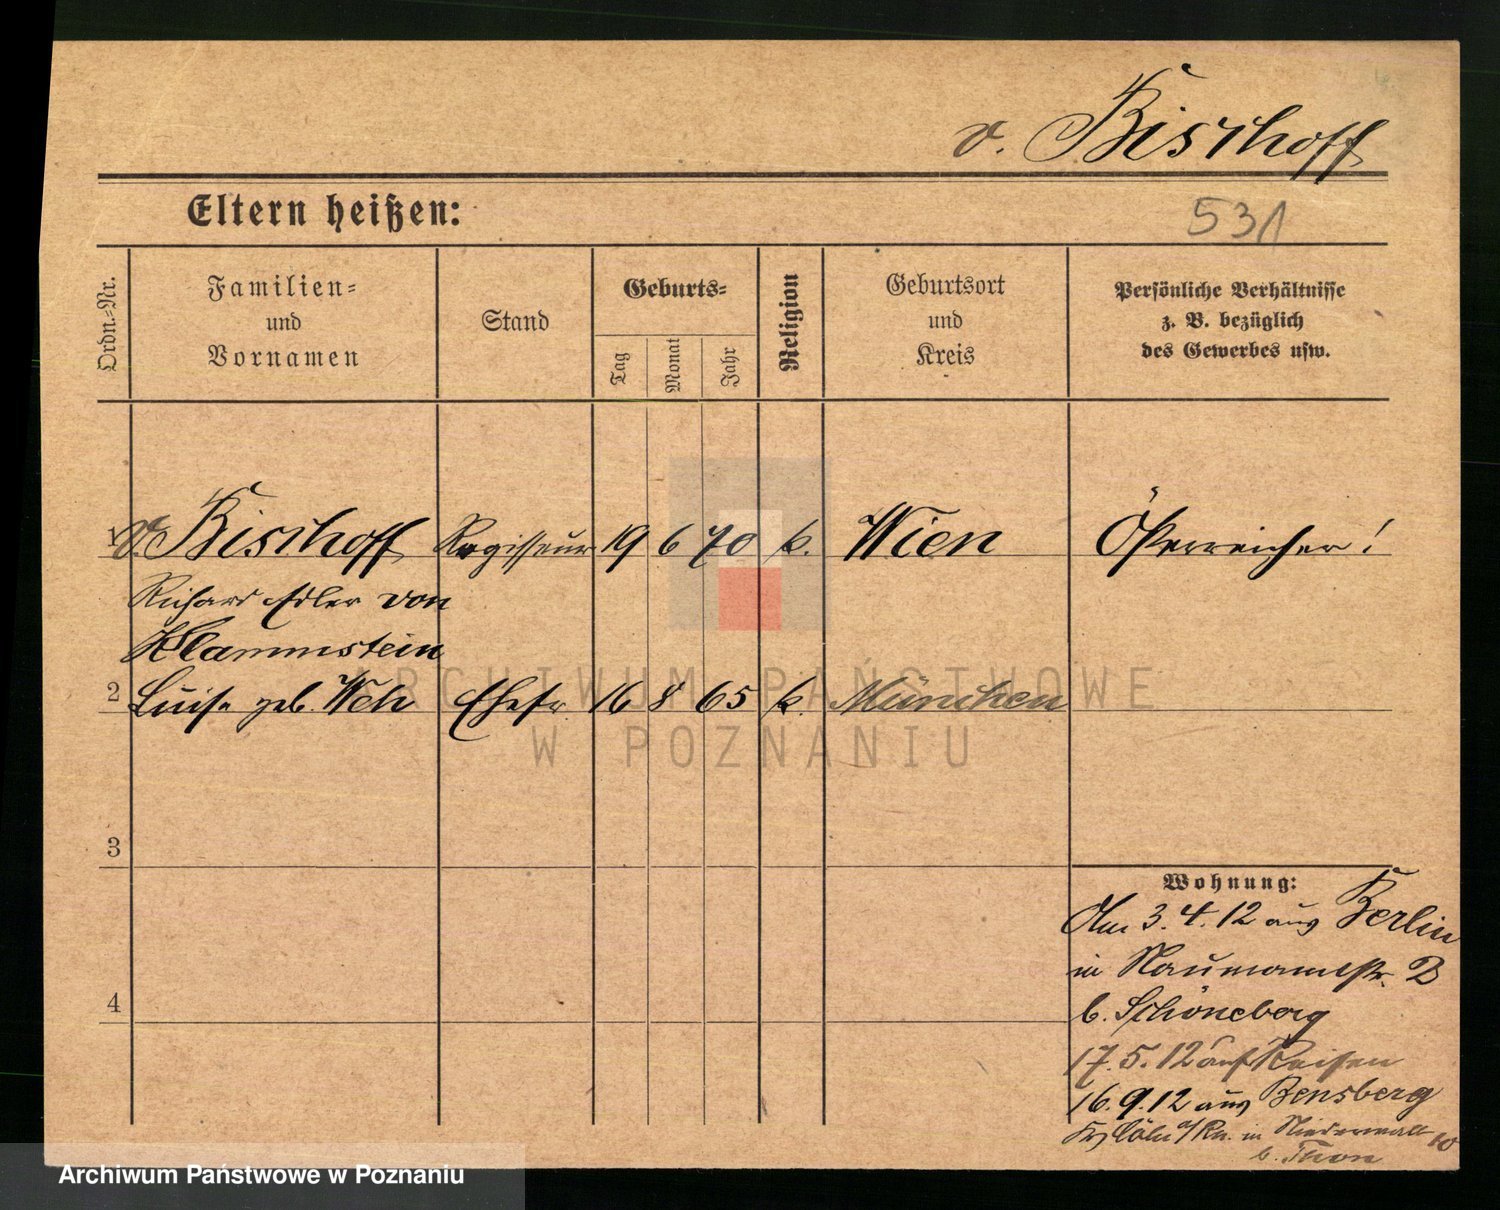 v. Bischoff
Eltern heißen:
531
Ordn.-Nr.
Familien-
und
Vornamen
Stand
Geburts-
Tag
Monat
Jahr
Religion
Geburtsort
und
Kreis
Persönliche Verhältnisse
z. B. bezüglich
des Gewerbes usw.
1 v. Bischoff Regisseur 19 6 70 k. Wien Österreicher!
Richard Edler von
Klammstein
2 Luise geb. Weh Ehefr. 16 8 65 k. München
ARCHIWUM PAŃSTWOWE
W POZNANIU
3
4
Wohnung:
Am 3.4.12 aus Berlin
in Naumannstr.
b. Schöneberg
17.5.12 auf Reisen
16.9.12 aus Bensberg
Cöln a/Rh. in Niederwall 10
b. Thon
Archiwum Państwowe w Poznaniu